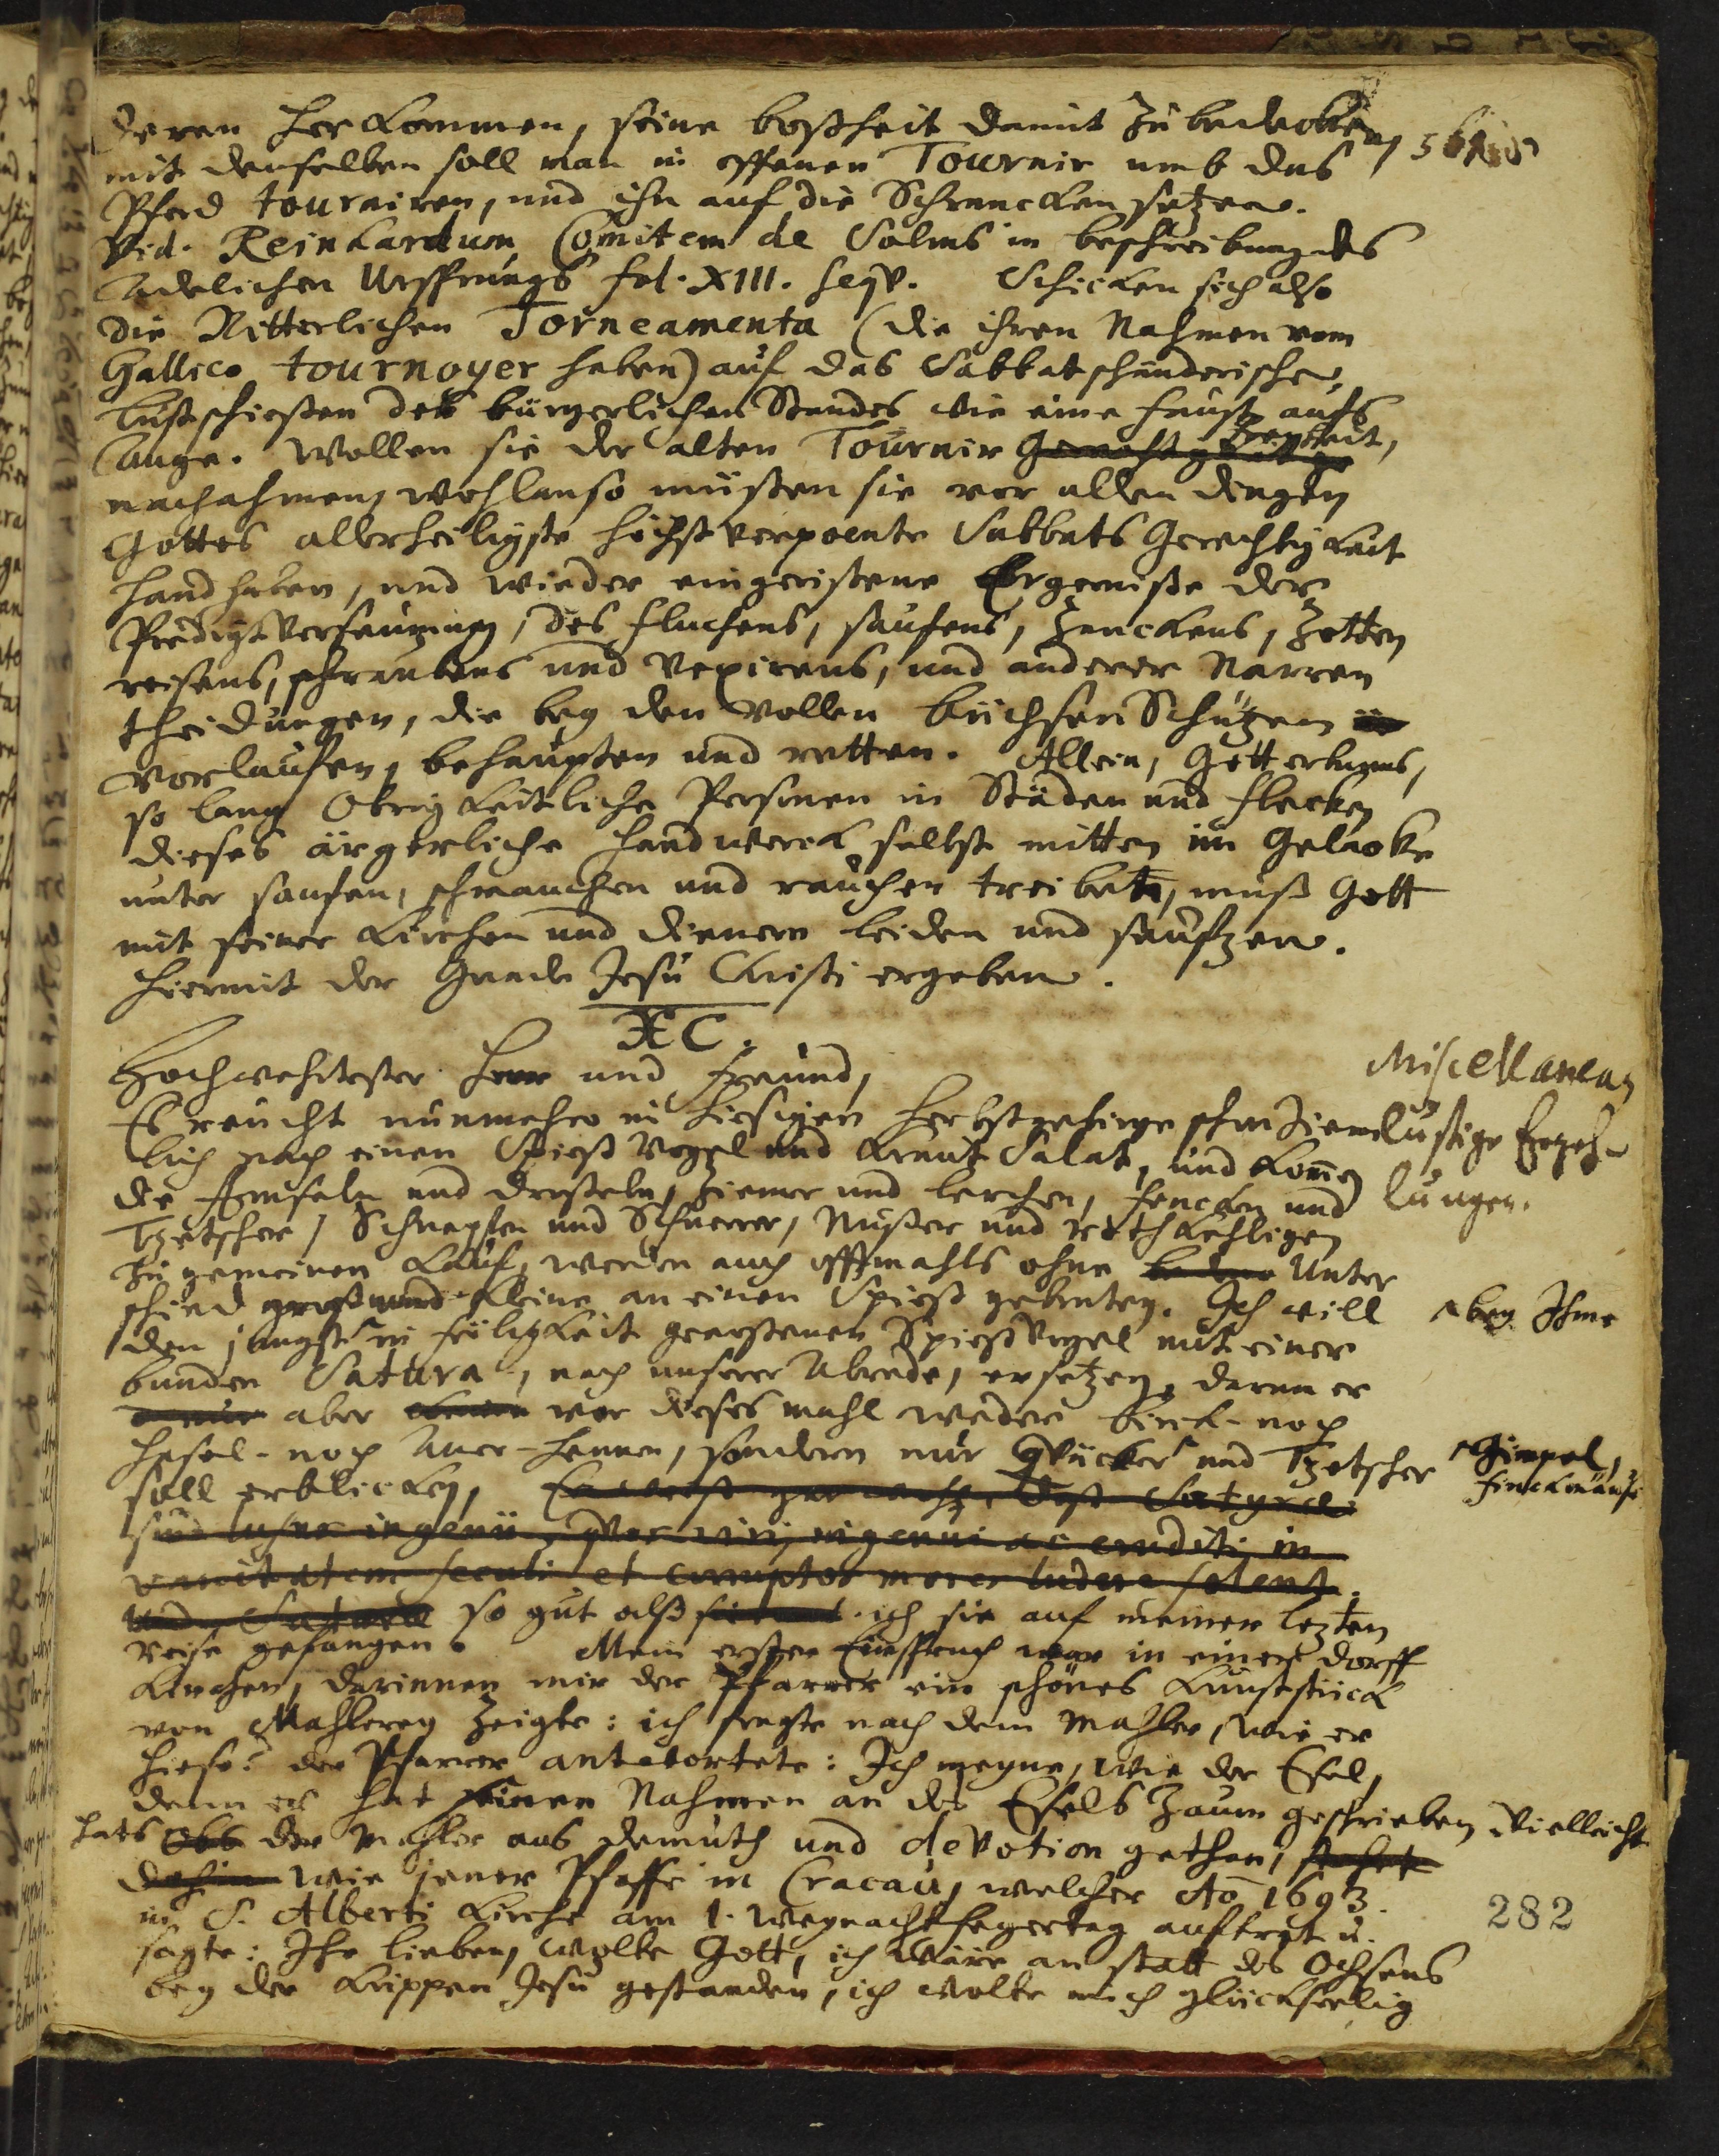 deren herkommen, seine boßheit damit zu bedecken,
mit denselben soll man in offenen Tournir umb das
Pferd tourniren, und ihn auf die Schrancken setzen.
Vid. Reinhardum Comitem de Solms in beschreibung des
Adelichen Ursprungs fol. XIII. seqv. Schicken sich also
die Ritterlichen Torneamenta (die ihren Nahmen vom
Gallico tournoyer haben) auf das Sabbatschänderische
Lustschießen des bürgerlichen Standes wie eine Faust aufs
Auge. Wollen sie der alten Tournir
nachahmen, wohlan so müßen sie vor allen dingen
Gottes allerheiligste höchst verpoente Sabbats Gerechtigkeit
handhaben, und wieder eingerißene Ergerniße der
Predigtversäumung, des fluchens, saufens, Zanckens, Zotten
reisens, schraubens und Vexirens, und anderer Narren
theidungen, die bey den vollen büchsen Schützen
vorlaufen, behaupten und retten. Allein, Gott erbarms,
so lang Obrigkeitliche Personen in Städen und Flecken
dieses ärgerliche handwerck selbst mitten im Gelacke
unter saufen, schmauchen und rauchen treiben, muß Gott
mit seiner Kirchen und dienern leiden und seufzen.
Hiermit der Gnade Jesu Christi ergeben.
XC.
Hochwehrtester Herr und Freund,
Miscellanea,
Es reucht nunmehro in hiesigen Herbstgebirge schon ziem
lustige Erzeh-
lich nach einen Spieß Vogel und Kraut Salat, und komen
lungen.
die Amseln und drosteln, Ziemer und lerchen, fincken und
Tzetscher, Schneppfen und Schnerrer, Nüster und rothkehligen
zu gemeinen Kauf, werden auch offtmahls ohne Unter
schied groß und kleine an einen Spieß gebraten. Ich will
bey Ihme
den jüngst in feiligkeit geeßenen Spießvogel mit einer
bunden Satura, nach unserer Abrede, ersetzen, darann er
aber vor dieses mahl weder birck- noch
hasel- noch Auer-hennen, sondern nur qväcker und Tzetscher
Gimpel,
soll erblicken,
sind lusus ingenii, qvos viri ingenui ac eruditi in
vanitatem seculi et corruptos mores ludere solent.
so gut alß ich sie auf meiner lezten
reise gefangen. Mein erster Einspruch war in einer dorff
kirchen, darinnen mir der Pfarrer ein schönes Kunststück
von Mahlerey zeigte: ich fragte nach dem Mahler, wie er
hiese? der Pfarrer antwortete: Ich meyne, wie der Esel,
denn er hat seinen Nahmen an des Esels Zaum geschrieben, Vielleicht
hats Obs der Mahler aus demuth und devotion gethan,
wie jener Pfaffe in Cracau, welcher Ao 1693.
in S. Alberti Kirche am 1. Weynachtfeyertag auftrat u.
282
sagte: Ihr lieben, wolte Gott, ich wäre an statt des Ochsens
bey der Krippen Jesu gestanden, ich wolte mich glückseelig